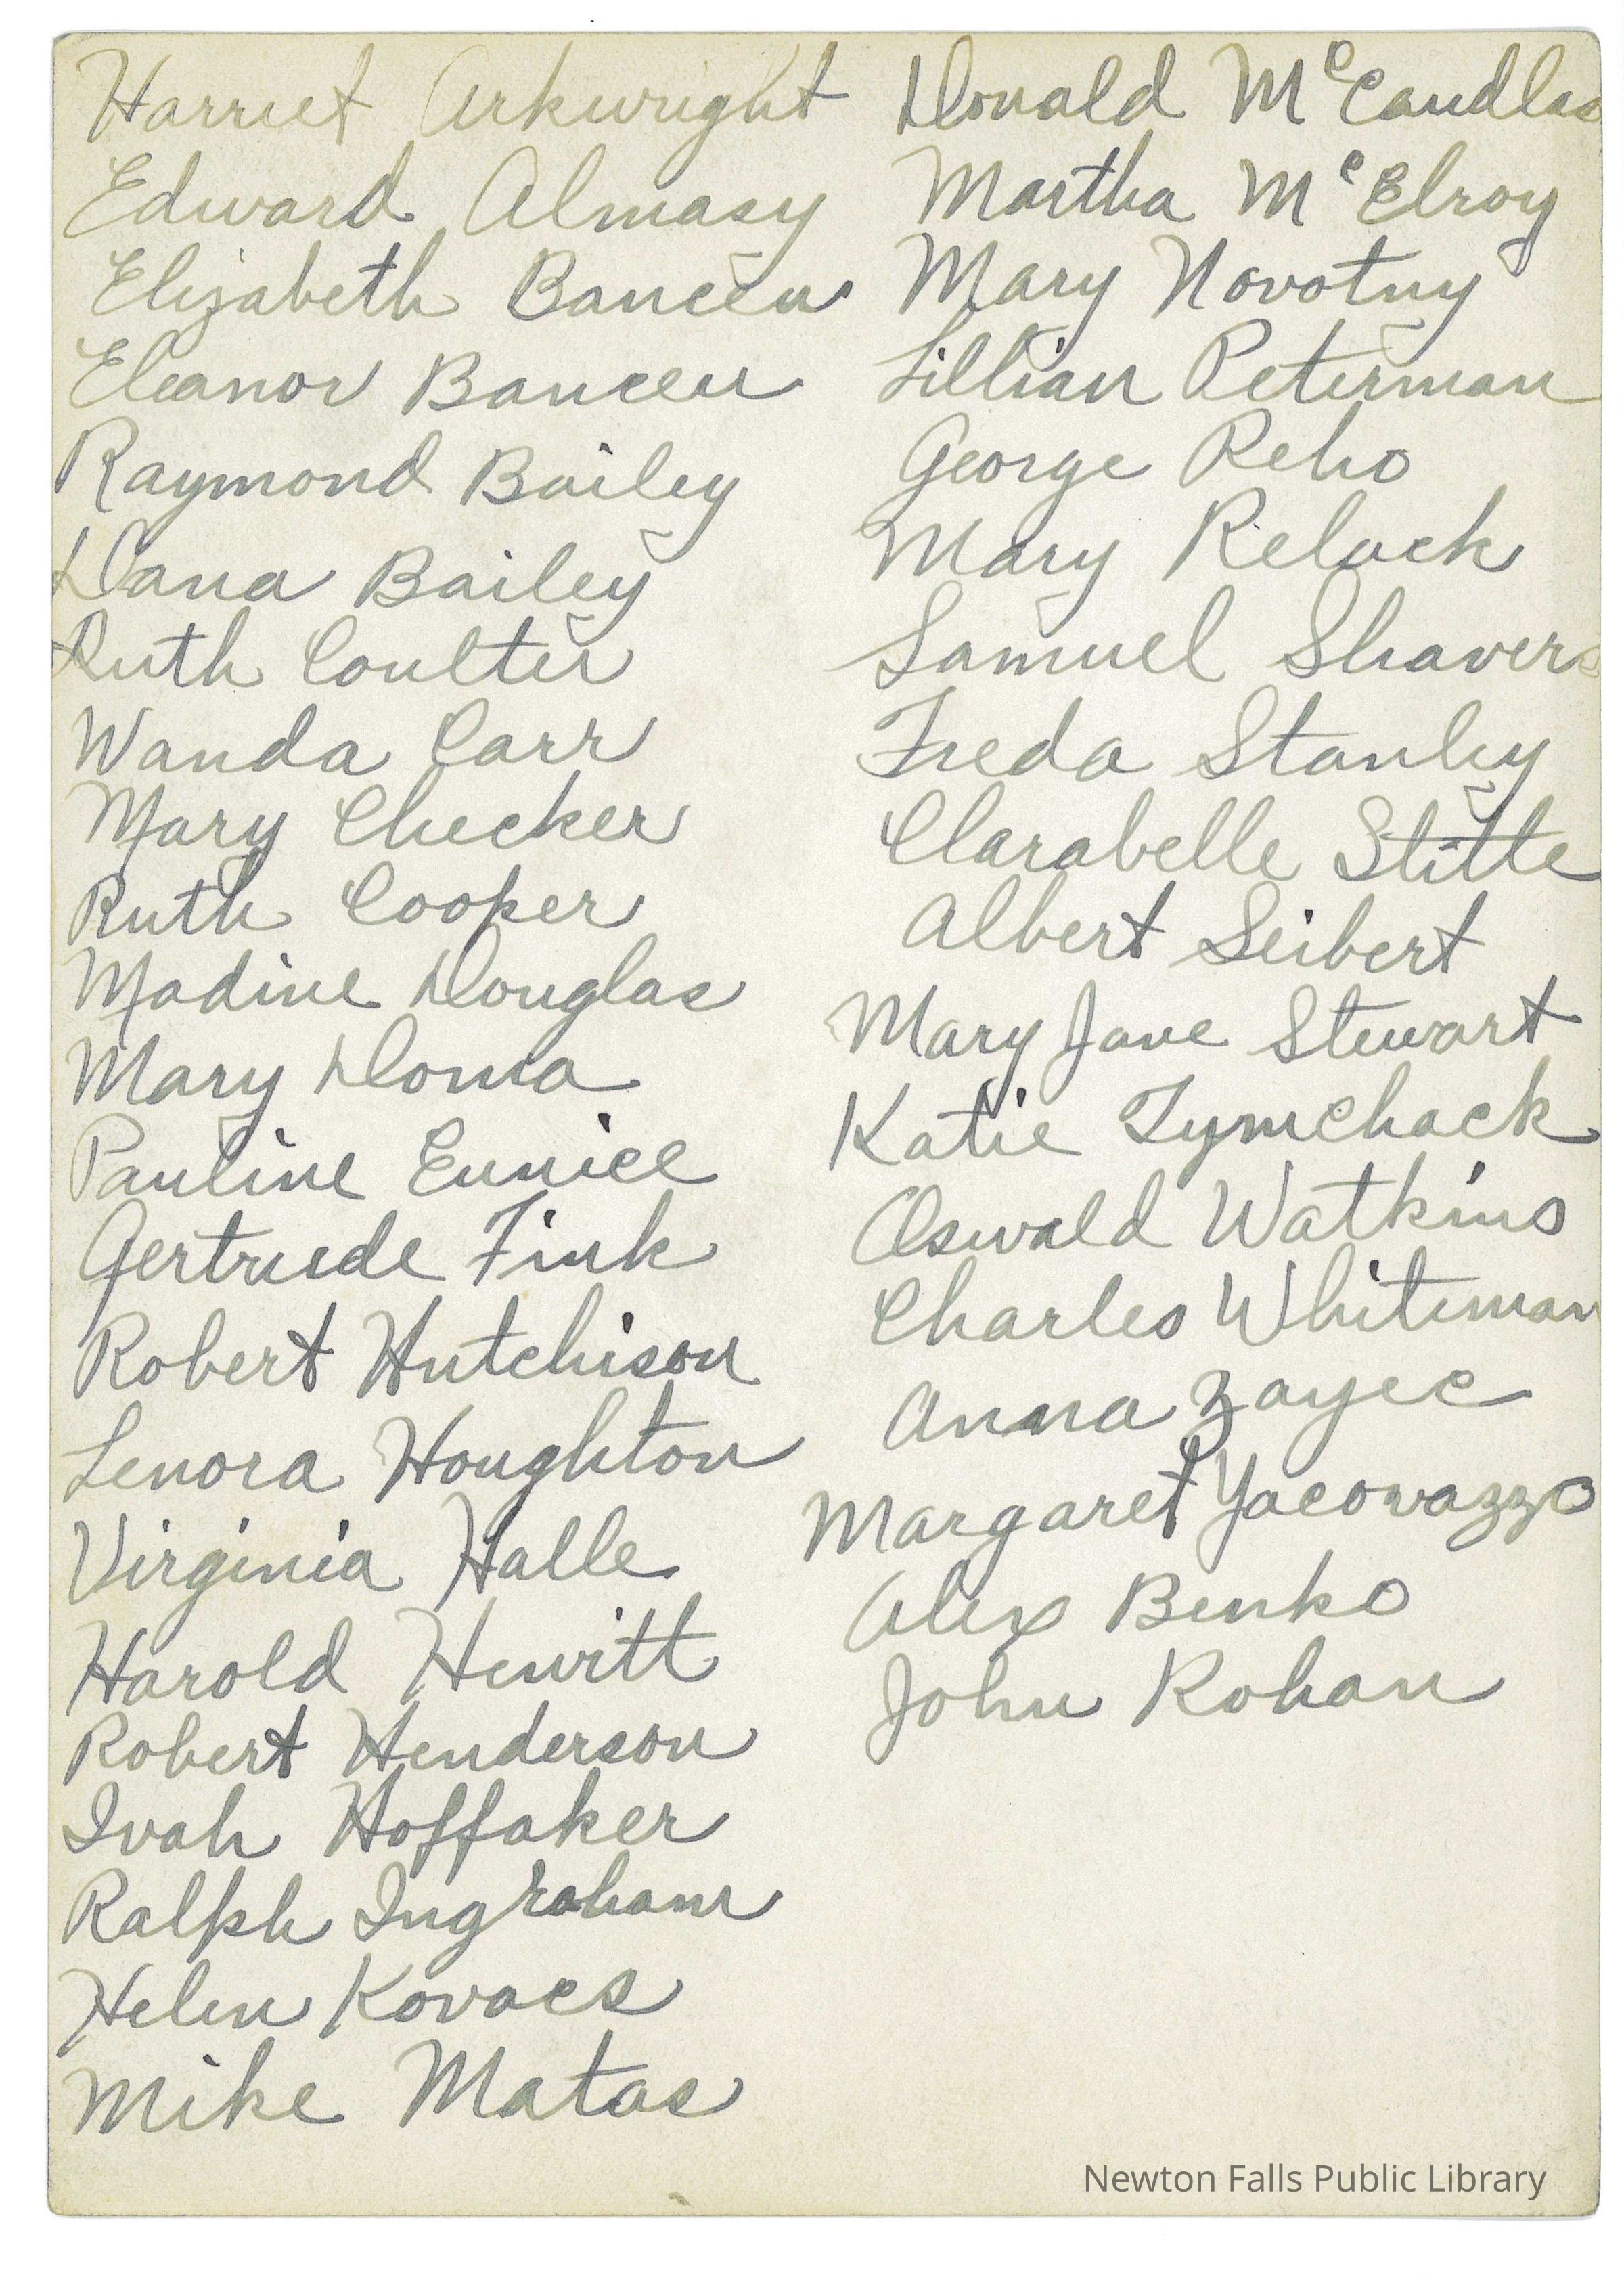 Harriet Arkwright
Edward Almasy
Elizabeth Banceu
Eleanor Banceu
Raymond Bailey
Dana Bailey
Ruth Coulter
Wanda Carr
Mary Checker
Ruth Cooper
Madine Douglas
Mary Doma
Pauline Eunice
Gertrude Fink
Robert Hutchison
Lenora Houghton
Virginia Halle
Harold Hewitt
Robert Henderson
Ivah Hoffaker
Ralph Ingraham
Helen Kovacs
Mike Matas
Donald McCandlas
Martha McElroy
Mary Novotny
Lillian Peterman
George Reho
Mary Reluck
Samuel Shavers
Freda Stanley
Clarabelle Stitle
Albert Seibert
Mary Jane Stewart
Katie Tymchack
Oswald Watkins
Charles Whiteman
Anna Zayec
Margaret Yacovazzo
Alex Benko
John Rohan
Newton Falls Public Library